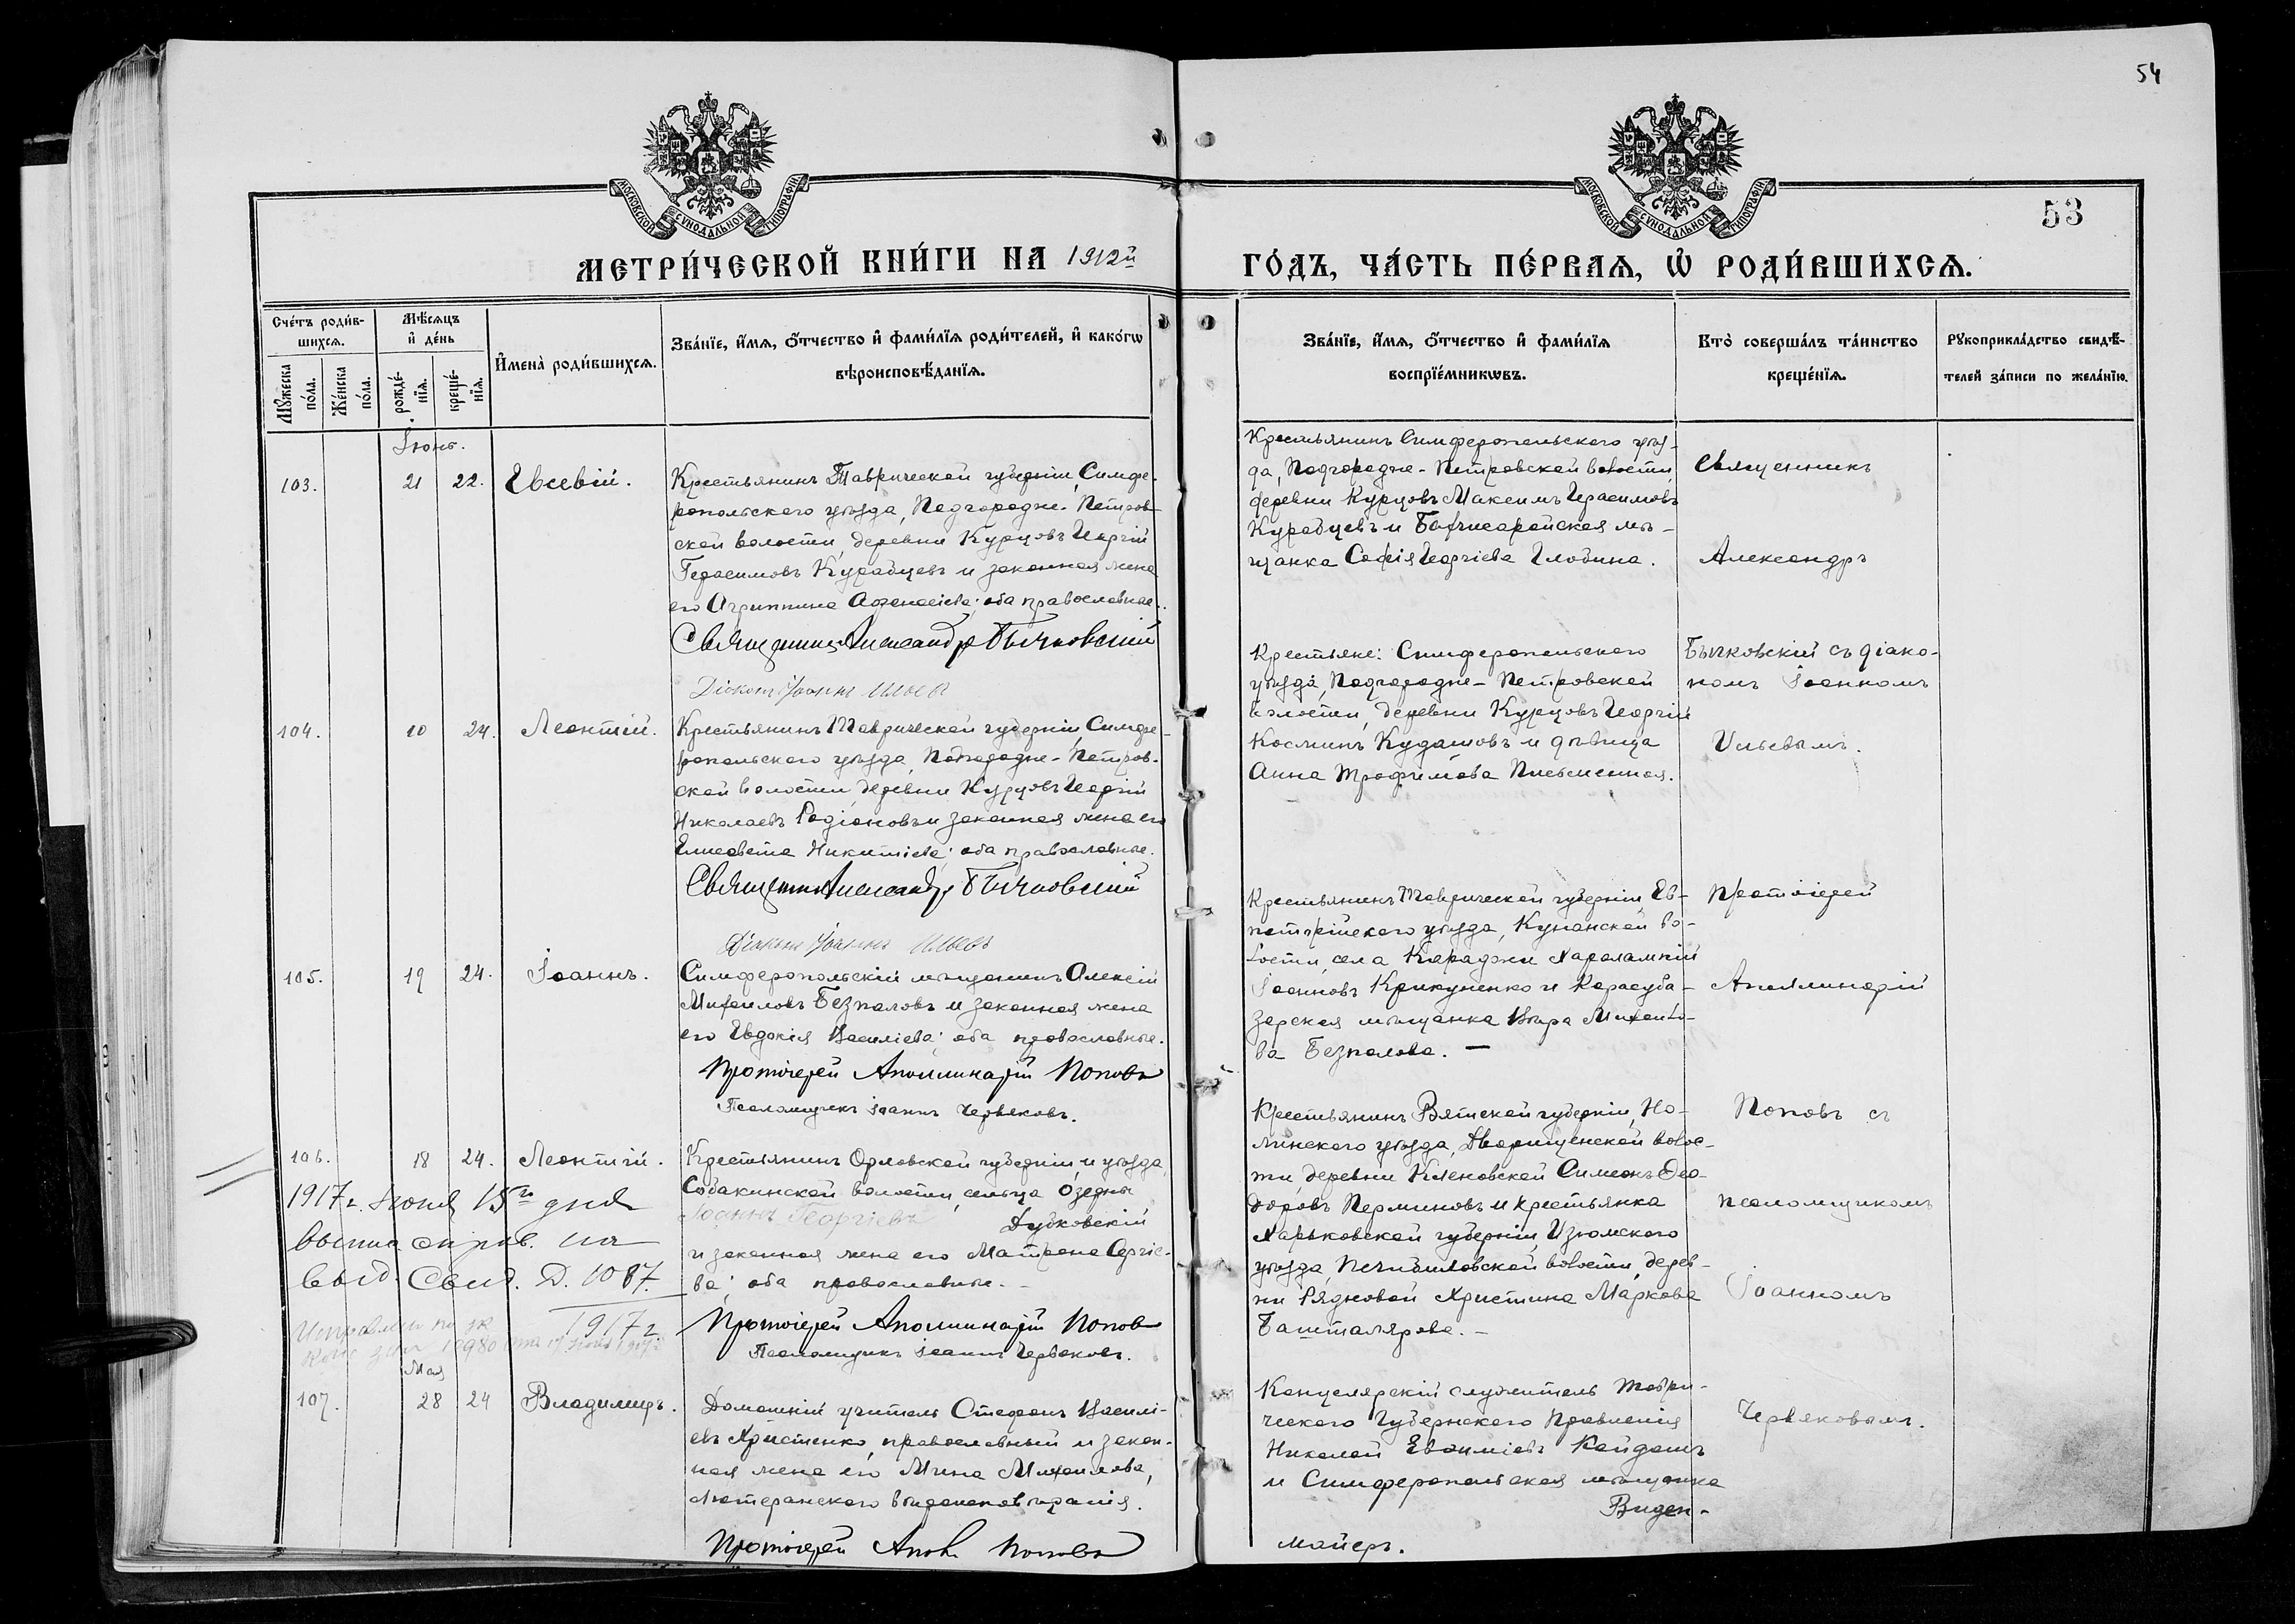 54
МОСКОВСКОЙ СѴНОДАЛЬНОЙ ТИПОГРАФІИ
МОСКОВСКОЙ СѴНОДАЛЬНОЙ ТИПОГРАФІИ
53
МЕТРИ́ЧЕСКОЙ КНИ́ГИ НА 1912й
ГО́ДЪ, ЧА́СТЬ ПЕ́РВАѦ, Ѡ РОДИ́ВШИХСѦ.
Сче́тъ роди́в-
шихсѧ.
Мꙋ́жеска по́ла.
Же́нска по́ла.
Мѣ́сѧцъ
и҆ де́нь
рожде́-
нїѧ.
креще́-
нїѧ.
И҆мена̀ роди́вшихсѧ.
Зва́нїе, и҆́мѧ, ѻ҆́тчество и҆ фами́лїѧ роди́телей, и҆ како́гѡ
вѣроисповѣ́данїѧ.
Зва́нїе, и҆́мѧ, ѻ҆́тчество и҆ фами́лїѧ
воспрїе́мникѡвъ.
Кто̀ соверша́лъ та́инство
креще́нїѧ.
Рꙋкоприкла́дство свидѣ́-
телей за́писи по жела́нїю.
Іюнь.
103.
21
22.
Евсевій.
Крестьянинъ Таврической губерніи, Симфе-
ропольского уѣзда, Подгородне-Петров-
ской волости, деревни Курцовъ Георгій
Герасимовъ Курабцевъ и законная жена
его Агриппина Аѳанасіева; оба православные.
Священникъ Александръ Бычковскій
Діаконъ Іоаннъ Ильевъ
Крестьянинъ Симферопольского уѣз-
да, Подгородне-Петровской волости,
деревни Курцовъ Максимъ Герасимовъ
Курабцевъ и Бахчисарайская мѣ-
щанка Софія Георгіева Глобина.
Священникъ
Александръ
104.
10
24.
Леонтій.
Крестьянинъ Таврической губерніи, Симфе-
ропольского уѣзда, Подгородне-Петров-
ской волости, деревни Курцовъ Георгій
Николаевъ Родіоновъ и законная жена его
Елисавета Никитіева; оба православные.
Священникъ Александръ Бычковскій
Діаконъ Іоаннъ Ильевъ
Крестьяне: Симферопольского
уѣзда, Подгородне-Петровской
волости, деревни Курцовъ Георгій
Косминъ Кудашовъ и дѣвица
Анна Трофимова Письменная.
Бычковскій съ діако-
номъ Іоанномъ
Ильевымъ.
105.
19
24.
Іоаннъ.
Симферопольскій мѣщанинъ Алексій
Михаиловъ Безпаловъ и законная жена
его Евдокія Василіева; оба православные.
Протоіерей Аполлинарій Поповъ
Псаломщикъ Іоаннъ Червяковъ.
Крестьянинъ Таврической губерніи, Ев-
паторійского уѣзда, Кунанской во-
лости, села Караджи Харалампій
Іоанновъ Крикуненко и Карасуба-
зарская мѣщанка Вѣра Михаило-
ва Безпалова. —
Протоіерей
Аполлинарій
106.
18
24.
Леонтій.
Крестьянинъ Орловской губерніи, и уѣзда,
Собакинской волости, сельца Озерны
Іоаннъ Георгіевъ Дубковскій
и законная жена его Матрона Сергіе-
ва; оба православные. —
Протоіерей Аполлинарій Поповъ
Псаломщикъ Іоаннъ Червяковъ.
1917г. Іюня 15го дня
выд. Свид. Д. 1087.
1917г
Крестьянинъ Вятской губерніи, Но-
линского уѣзда, Дворищенской волос-
ти, деревни Кленовской Симеонъ Ѳео-
доровъ Перминовъ и крестьянка
Харьковской губерніи, Изюмского
уѣзда, волости, дерев-
ни Рядновой Христина Маркова
Башталярова. —
Поповъ съ
псаломщикомъ
Іоанномъ
Мая
107.
28
24
Владимиръ.
Домашній учитель Стефанъ Василі-
евъ Христенко, православный и закон-
ная жена его Мина Михаилова,
Лютеранского вѣроисповѣданія.
Протоіерей Апол. Поповъ
Канцелярскій служитель Таври-
ческого Губернского Правленія
Николай Евѳиміевъ Кайдашъ
и Симферопольская мѣщанка
Виден-
майеръ.
Червяковымъ.